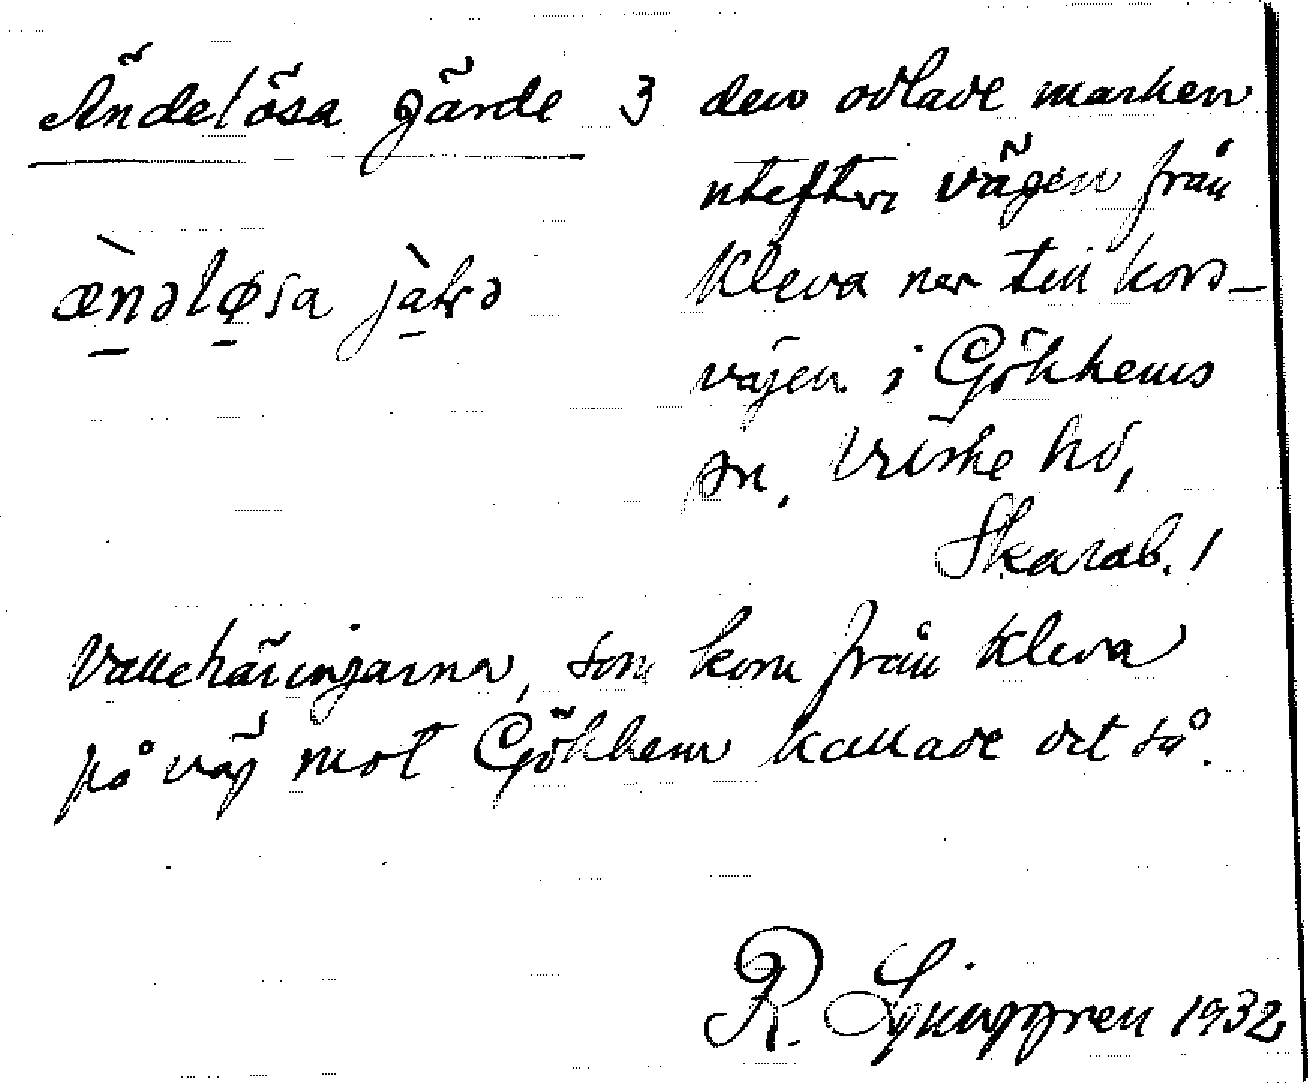 Ändelösa gärde 3 den odlade marken
utefter vägen från
Kleva ner till kors-
vägen i Gökhems
sn. Vilske hd,
Skarab. l
 æ̀nəløsa
Vallehäringarna, som kom från Kleva
på väg mot Gökhem kallade det så.
R. Ljunggren 1932